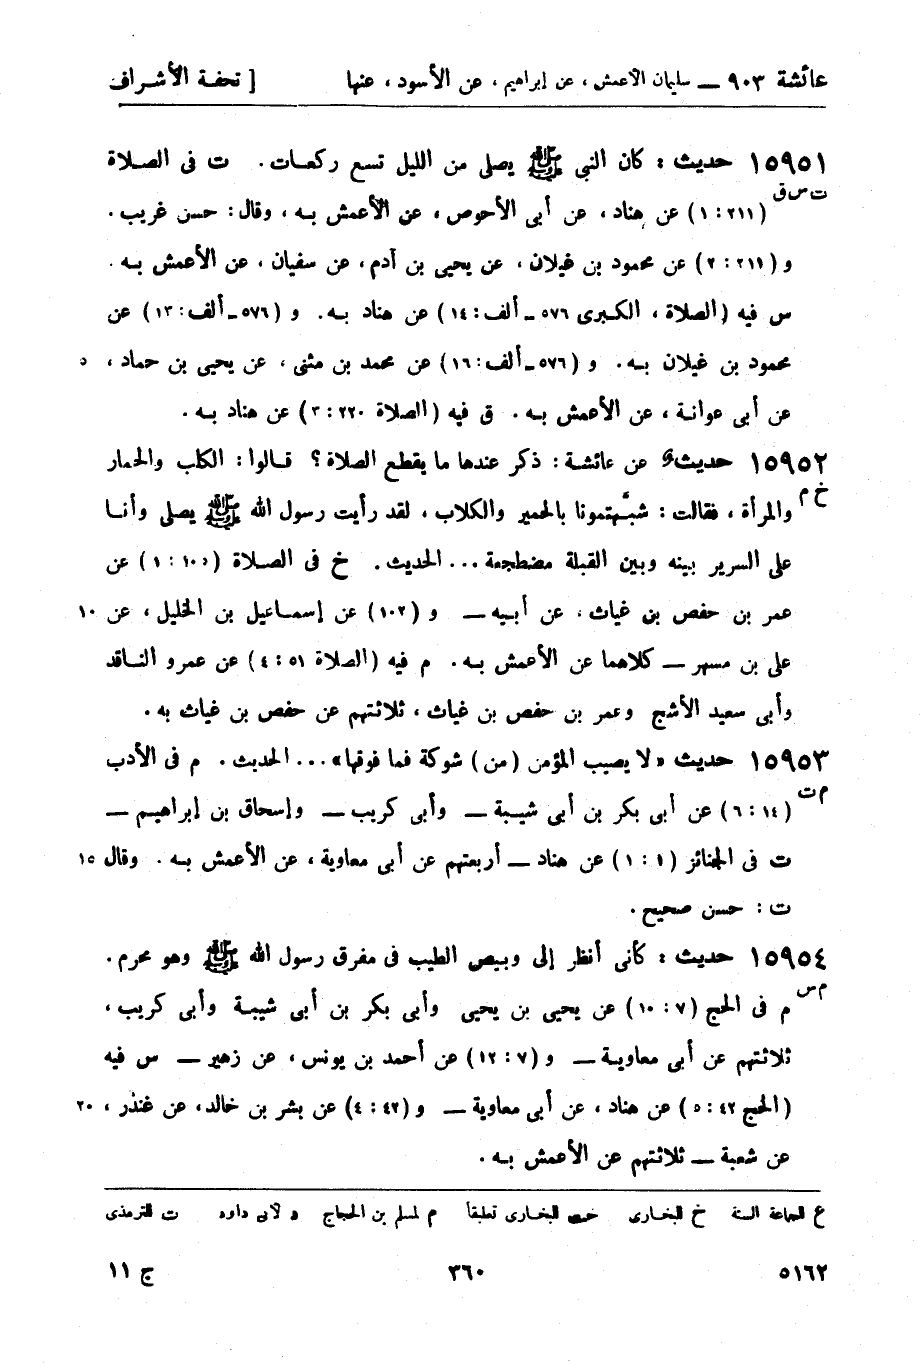 عائشة ٩٠٣ — سليمان الأعمش ، عن إبراهيم ، عن الأسود ، عنها [ تحفة الأشراف
١٥٩٥١ حديث : كان النبي ﷺ يصلى من الليل تسع ركعات . ت فى الصلاة
ت س ق
(٢١١ : ١) عن هناد ، عن أبى الأحوص ، عن الأعمش به ، وقال : حسن غريب .
و (٢١١ : ٢) عن محمود بن غيلان ، عن يحيى بن آدم ، عن سفيان ، عن الأعمش به .
س فيه (الصلاة ، الكبرى ٥٧٦ ـ ألف : ١٤) عن هناد به . و (٥٧٦ ـ ألف : ١٣) عن
محمود بن غيلان به . و (٥٧٦ ـ ألف : ١٦) عن محمد بن مثنى ، عن يحيى بن حماد ، ٥
عن أبى عوانة ، عن الأعمش به . ق فيه (الصلاة ٢٢٠ : ٣) عن هناد به .
١٥٩٥٢ حديث عن عائشة : ذكر عندها ما يقطع الصلاة ؟ قالوا : الكلب والحمار
خ م
والمرأة ، فقالت : شبّهتمونا بالحمير والكلاب ، لقد رأيت رسول الله ﷺ يصلى وأنا
على السرير بينه وبين القبلة مضطجعة ... الحديث . خ فى الصلاة (١٠٥ : ١) عن
عمر بن حفص بن غياث ، عن أبيه — و (١٠٢) عن إسماعيل بن الخليل ، عن ١٠
على بن مسهر — كلاهما عن الأعمش به . م فيه (الصلاة ٥١ : ٤) عن عمرو الناقد
وأبى سعيد الأشج وعمر بن حفص بن غياث ، ثلاثتهم عن حفص بن غياث به .
١٥٩٥٣ حديث «لا يصيب المؤمن (من) شوكة فما فوقها» ... الحديث . م فى الأدب
م ت
(١٤ : ٦) عن أبى بكر بن أبى شيبة — وأبى كريب — وإسحاق بن إبراهيم —
ت فى الجنائز (١ : ١) عن هناد — أربعتهم عن أبى معاوية ، عن الأعمش به . وقال ١٥
ت : حسن صحيح .
١٥٩٥٤ حديث : كأنى أنظر إلى وبيص الطيب فى مفرق رسول الله ﷺ وهو محرم .
م س
م فى الحج (٧ : ١٠) عن يحيى بن يحيى وأبى بكر بن أبى شيبة وأبى كريب ،
ثلاثتهم عن أبى معاوية — و (٧ : ١٢) عن أحمد بن يونس ، عن زهير — س فيه
(الحج ٤٢ : ٥) عن هناد ، عن أبى معاوية — و (٤٢ : ٤) عن بشر بن خالد ، عن غندر ، ٢٠
عن شعبة — ثلاثتهم عن الأعمش به .
ع للجماعة الستة خ للبخارى خت للبخارى تعليقاً م لمسلم بن الحجاج د لأبى داود ت للترمذى
٥١٦٢ ٣٦٠ ج ١١